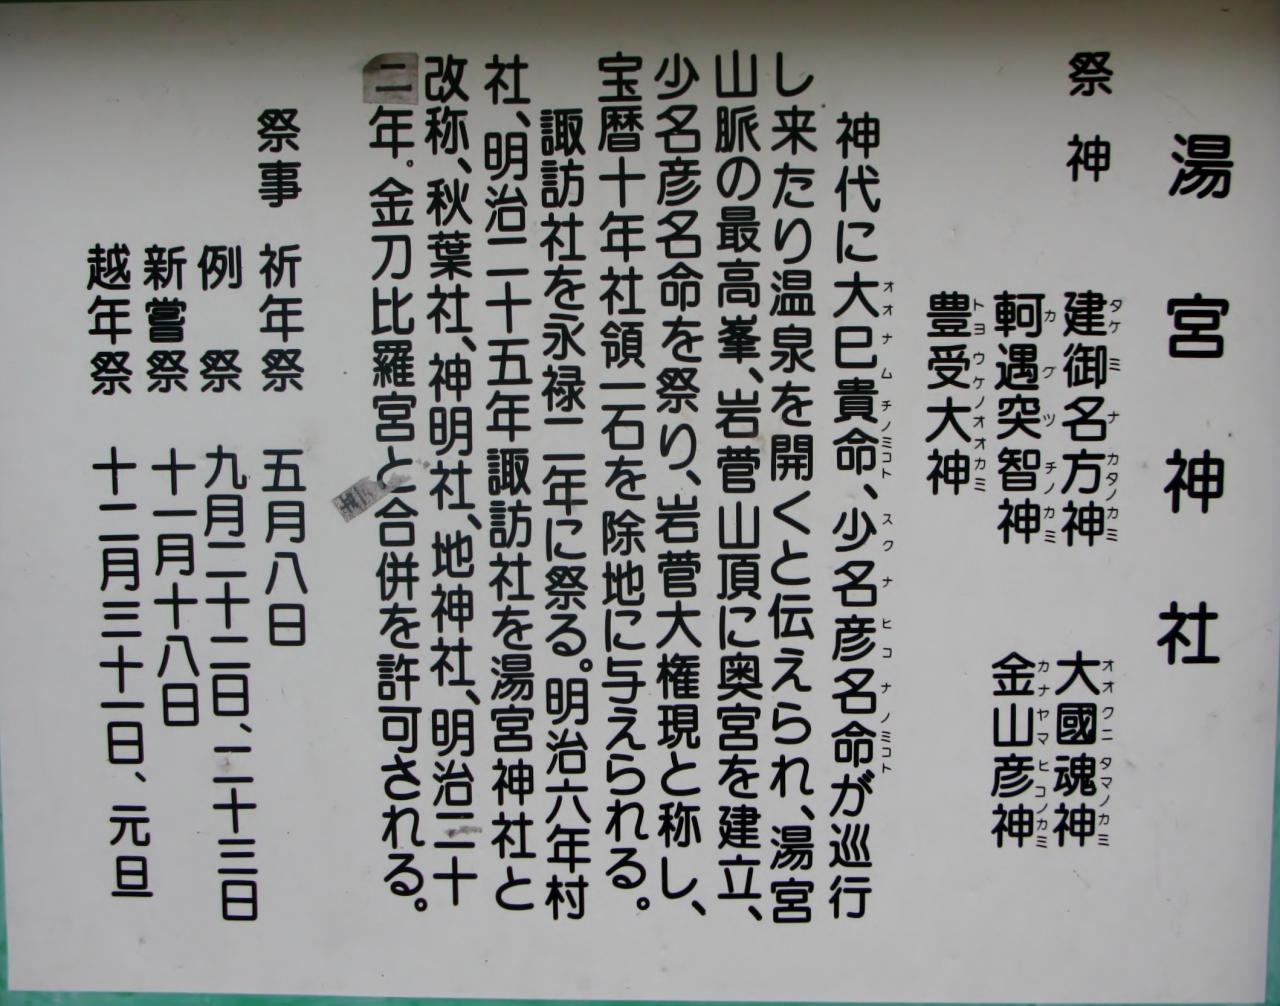 湯宮神社
祭神 建御名方神 大國魂神
タケミナカタノカミ オオクニタマノカミ
軻遇突智神 金山彦神
カグツチノカミ カナヤマヒコノカミ
豊受大神
トヨウケノオオカミ
神代に大巳貴命、少名彦名命が巡行
オオナムチノミコト スクナヒコナノミコト
し来たり温泉を開くと伝えられ、湯宮
山脈の最高峯、岩菅山頂に奥宮を建立、
少名彦名命を祭り、岩菅大権現と称し、
宝暦十年社領一石を除地に与えられる。
諏訪社を永禄二年に祭る。明治六年村
社、明治二十五年諏訪社を湯宮神社と
改称、秋葉社、神明社、地神社、明治二十
二年。金刀比羅宮と合併を許可される。
祭事 祈年祭 五月八日
例祭 九月二十二日、二十三日
新嘗祭 十一月十八日
越年祭 十二月三十一日、元旦